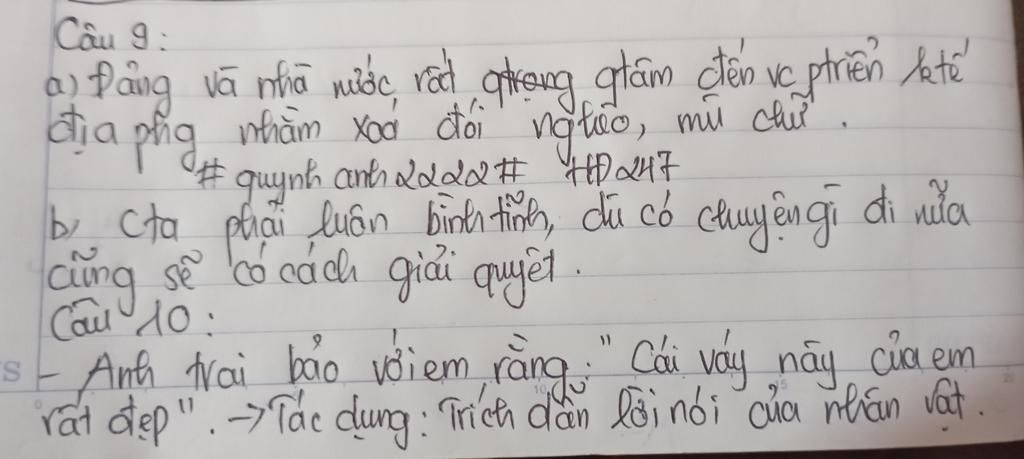 Câu 9:
a) Đảng và nhà nước rất qtrọng qtâm đến vc ptriển ktế
địa phg nhằm xoá đói nghèo, mù chữ.
#quynh anh2222# HĐ247
b, Cta phải luôn bình tĩnh, dù có chuyện gì đi nữa
cũng sẽ có cách giải quyết.
Câu 10:
- Anh trai bảo với em rằng: "Cái váy này của em
rất đẹp". → Tác dụng: Trích dẫn lời nói của nhân vật.